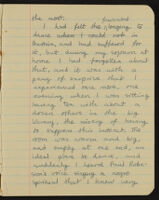 the most.
I had felt this longing to
dance when I could not in
Austria, and had suffered for
it, but during my sojourn at
home I had forgotten about
that, and it was with a
pang of surprise that I
experienced once more, one
evening when I was sitting
having tea with about a
dozen others in the big
library, the misery of having
to suppress this instinct. The
room was warm and big,
and empty at one end, an
ideal place to dance, and
suddenly I heard Paul Robe-
son's voice singing a negro
spiritual that I knew very